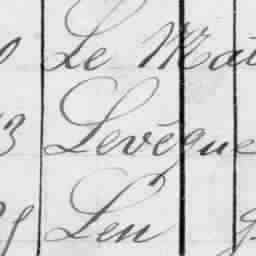 Le Mat
3 Levêque
Leu